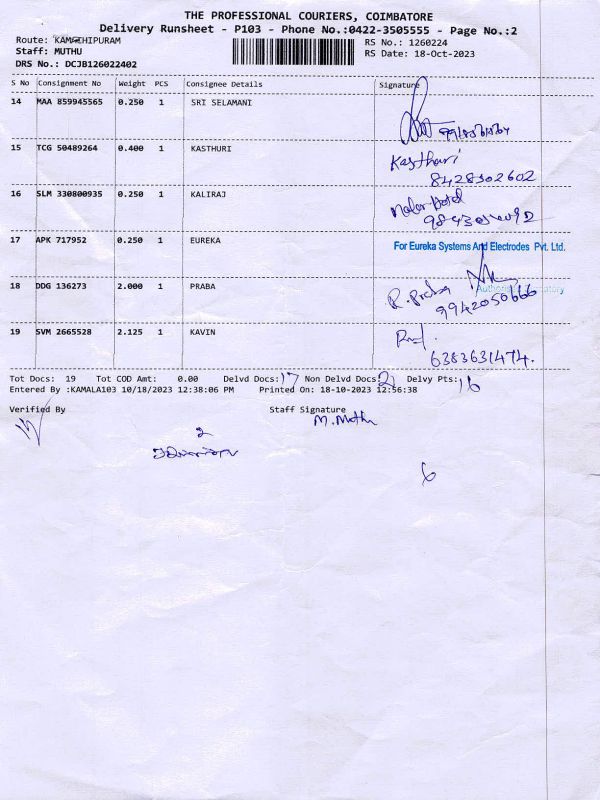 THE PROFESSIONAL COURIERS, COIMBATORE
Delivery Runsheet - P103 - Phone No.:0422-3505555 - Page No.:2
Route: KAMACHIPURAM
RS No.: 1260224
Staff: MUTHU
RS Date: 18-Oct-2023
DRS No.: DCJB126022402
S No Consignment No Weight PCS Consignee Details Signature
14 MAA 859945565 0.250 1 SRI SELAMANI
15 TCG 50489264 0.400 1 KASTHURI Kasthuri
8428302602
16 SLM 330800935 0.250 1 KALIRAJ
17 APK 717952 0.250 1 EUREKA For Eureka Systems And Electrodes Pvt. Ltd.
18 DDG 136273 2.000 1 PRABA R. Praba
9942050666
19 SVM 2665528 2.125 1 KAVIN
6383631474.
Tot Docs: 19 Tot COD Amt: 0.00 Delvd Docs: 17 Non Delvd Docs 2 Delvy Pts: 16
Entered By :KAMALA103 10/18/2023 12:38:06 PM Printed On: 18-10-2023 12:56:38
Verified By Staff Signature
M. Muthu
2
6